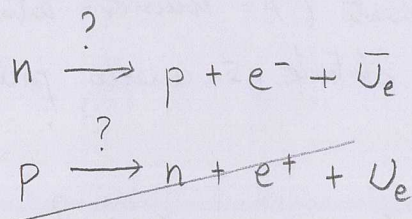 ?
n → p + e⁻ + ν̄ₑ
?
p → n + e⁺ + νₑ